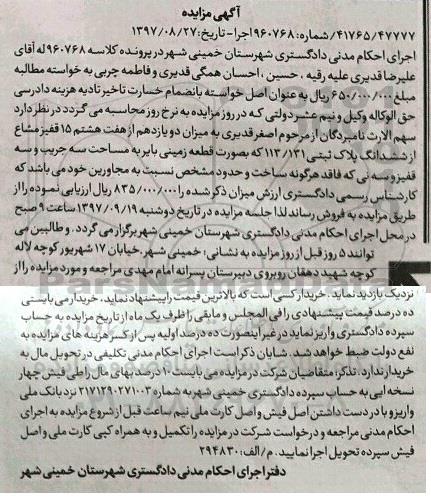 آگهی مزایده
۴۱۷۶۵/۴۷۷۷۷/شماره: ۹۶۰۷۶۸ اجرا - تاریخ: ۱۳۹۷/۰۸/۲۷
اجرای احکام مدنی دادگستری شهرستان خمینی شهر در پرونده کلاسه ۹۶۰۷۶۸ له آقای
علیرضا قدیری علیه رقیه ، حسین ، احسان همگی قدیری و فاطمه چربی به خواسته مطالبه
مبلغ ۶۵۰/۰۰۰/۰۰۰ ریال به عنوان اصل خواسته بانضمام خسارت تاخیر تادیه هزینه دادرسی
حق الوکاله وکیل و نیم عشر دولتی که در روز مزایده به نرخ روز محاسبه می گردد در نظر دارد
سهم الارث نامبردگان از مرحوم اصغر قدیری به میزان دو یازدهم از هفت هشتم ۱۵ قفیز مشاع
از ششدانگ پلاک ثبتی ۱۱۳/۱۳۱ که بصورت قطعه زمینی بایر به مساحت سه جریب و سه
قفیز و سه نی که فاقد هرگونه ساخت و حدود مشخص نسبت به مجاورین خود می باشد که
کارشناس رسمی دادگستری ارزش میزان ذکر شده را ۸۳۵/۰۰۰/۰۰۰ ریال ارزیابی نموده را از
طریق مزایده به فروش رساند لذا جلسه مزایده در تاریخ دوشنبه ۱۳۹۷/۰۹/۱۹ ساعت ۹ صبح
در محل اجرای احکام مدنی دادگستری شهرستان خمینی شهر برگزار می گردد . و طالبین می
توانند ۵ روز قبل از روز مزایده به نشانی: خمینی شهر. خیابان ۱۷ شهریور کوچه لاله
کوچه شهید دهقان روبروی دبیرستان پسرانه امام مهدی مراجعه و مورد مزایده را از
نزدیک بازدید نماید. خریدار کسی است که بالاترین قیمت را پیشنهاد نماید. خریدار می بایستی
ده درصد قیمت پیشنهادی را فی المجلس و مابقی را ظرف یک ماه از تاریخ مزایده به حساب
سپرده دادگستری واریز نماید در غیر اینصورت ده درصد اولیه پس از کسر هزینه های مزایده به
نفع دولت ضبط خواهد شد. شایان ذکر است اجرای احکام مدنی تکلیفی در تحویل مال به
خریدار ندارد. تذکر: متقاضیان شرکت در مزایده می بایست ۱۰ درصد بهای مال را طی فیش چهار
نسخه ایی به حساب سپرده دادگستری خمینی شهر به شماره ۲۱۷۱۲۹۰۲۷۱۰۰۳ نزد بانک ملی
واریز و با در دست داشتن اصل فیش و اصل کارت ملی نیم ساعت قبل از شروع مزایده به اجرای
احکام مدنی مراجعه و درخواست شرکت در مزایده را تکمیل و به همراه کپی کارت ملی و اصل
فیش سپرده تحویل اجرا نمایید. م/الف: ۲۹۴۸۳۰
دفتر اجرای احکام مدنی دادگستری شهرستان خمینی شهر